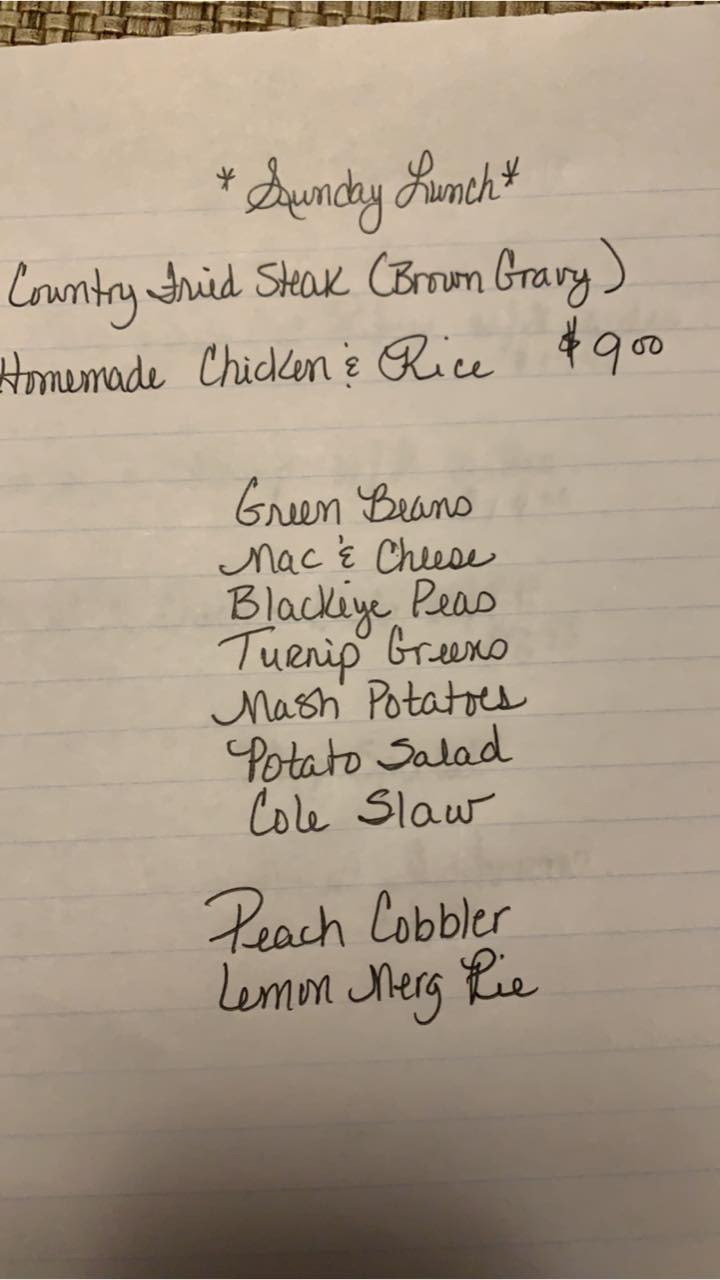 *Sunday Lunch*
Country Fried Steak (Brown Gravy)
Homemade Chicken & Rice $9.00
Green Beans
Mac & Cheese
Blackeye Peas
Turnip Greens
Mash Potatoes
Potato Salad
Cole Slaw
Peach Cobbler
Lemon Merg Pie